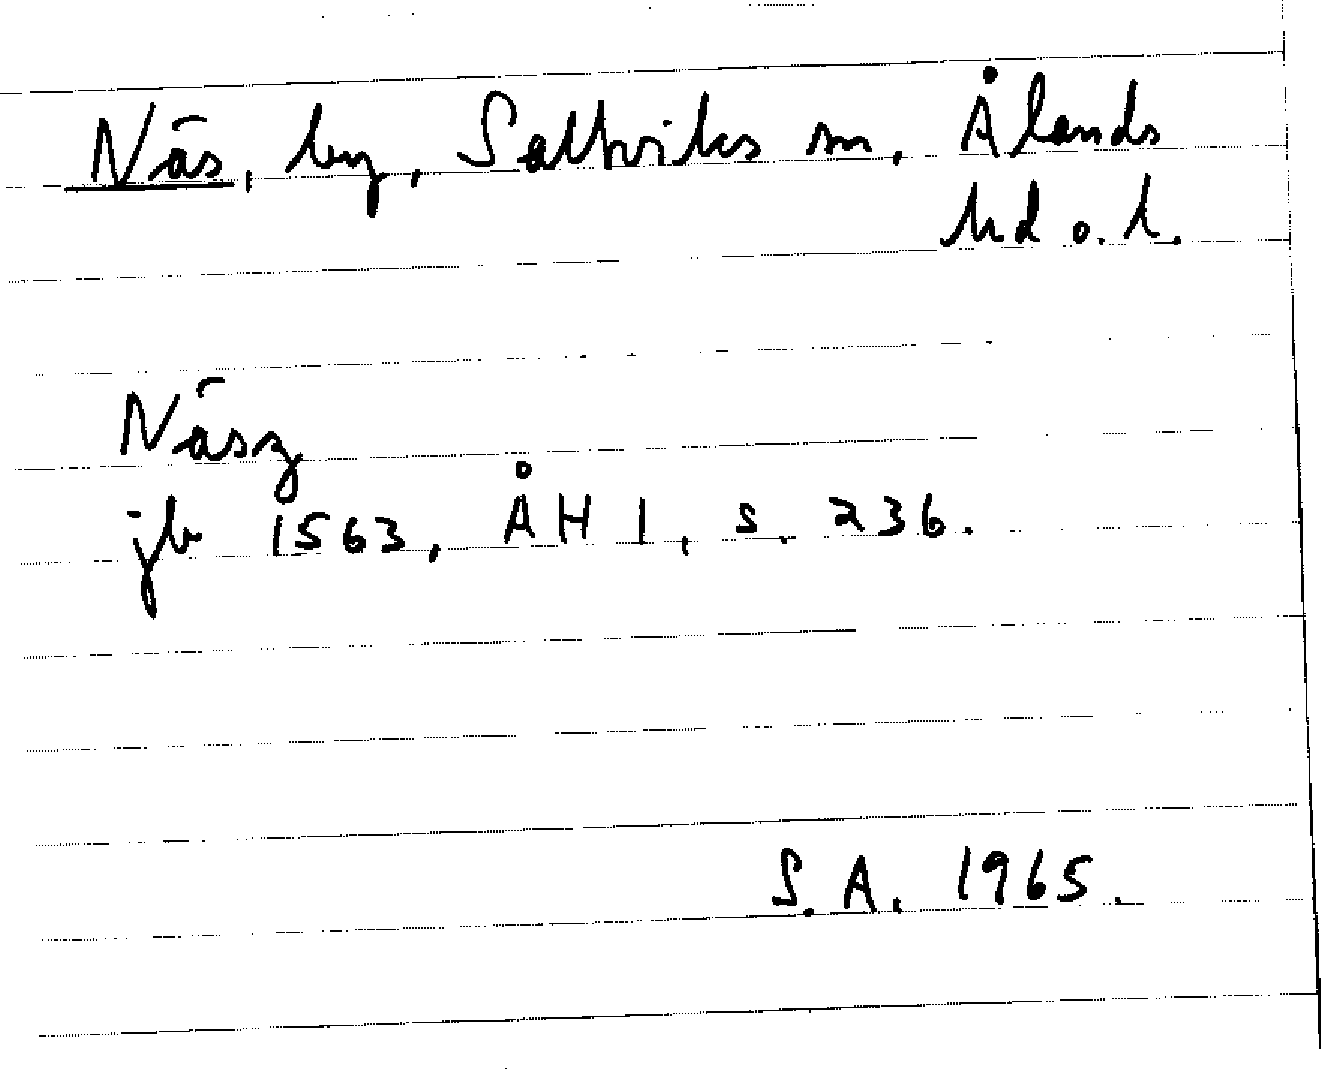 Näs, by, Saltviks sn, Ålands
hd o. l.
Näsz
jb 1563, ÅH I, s. 236.
S. A. 1965.